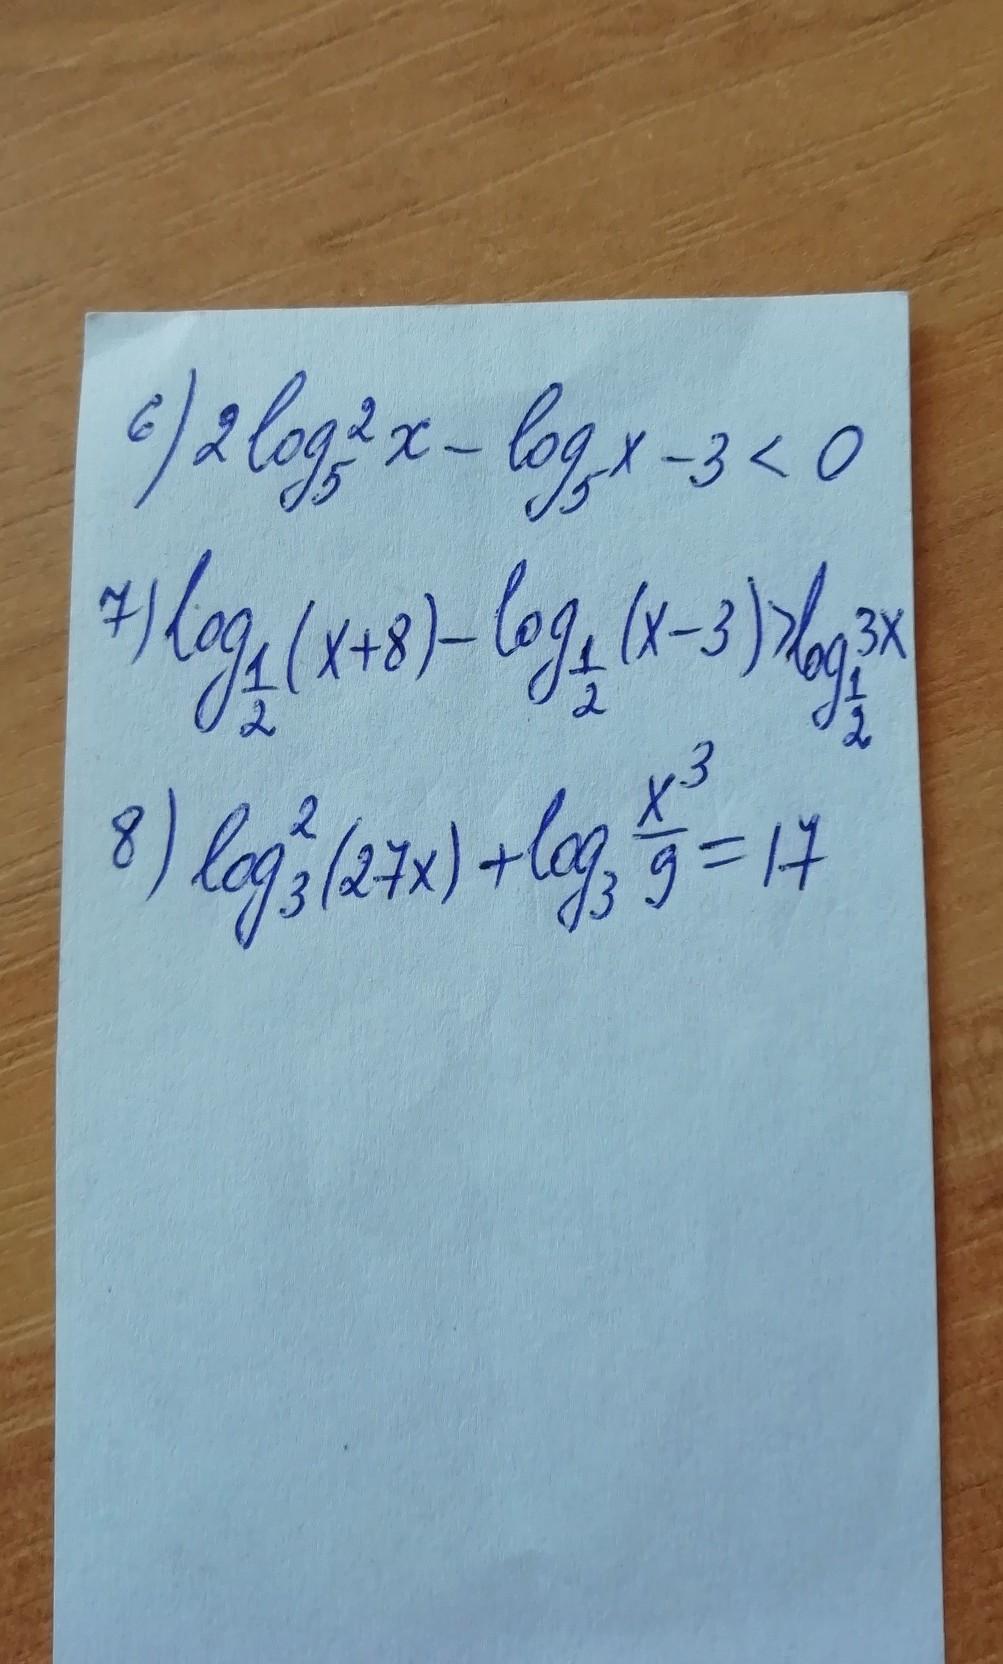 6) 2log₅²x - log₅x - 3 < 0
7) log_{1/2}(x+8) - log_{1/2}(x-3) > log_{1/2}3x
8) log₃²(27x) + log₃ x³/9 = 17